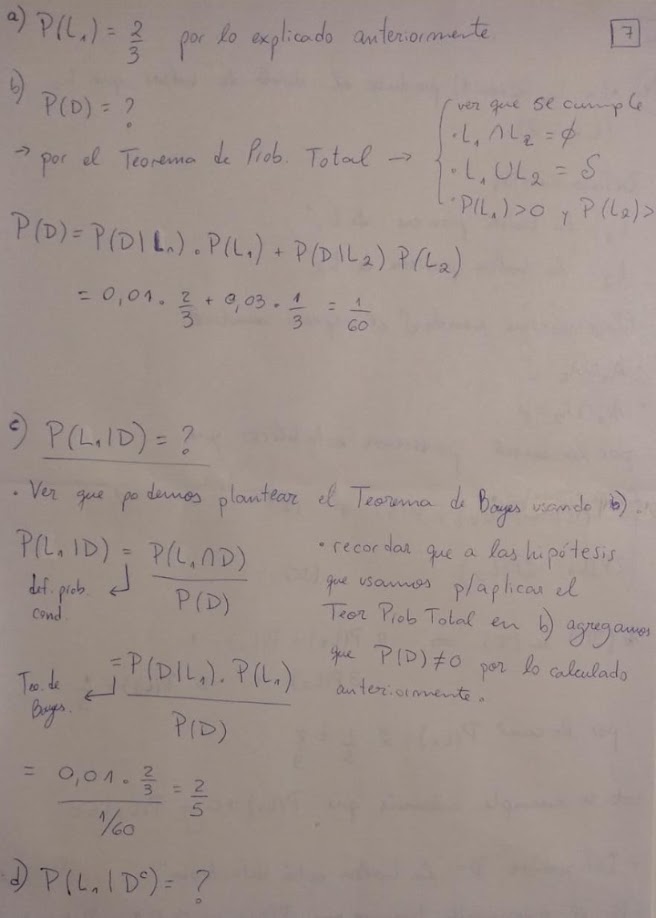 a) P(L₁) = 2/3 por lo explicado anteriormente. 7
b) P(D) = ?
→ por el Teorema de Prob. Total →
ver que se cumple
· L₁ ∩ L₂ = ∅
· L₁ ∪ L₂ = S
· P(L₁) > 0 y P(L₂) >
P(D) = P(D|L₁) . P(L₁) + P(D|L₂) P(L₂)
= 0,01 . 2/3 + 0,03 . 1/3 = 1/60
c) P(L₁|D) = ?
. Ver que podemos plantear el Teorema de Bayes usando b).
P(L₁|D) = P(L₁∩D) / P(D)
def. prob. cond.
= P(D|L₁) . P(L₁) / P(D)
Teo. de Bayes.
= 0,01 . 2/3 / 1/60 = 2/5
· recordar que a las hipótesis
que usamos p/aplicar el
Teor Prob Total en b) agregamos
que P(D) ≠ 0 por lo calculado
anteriormente.
d) P(L₁|Dᶜ) = ?